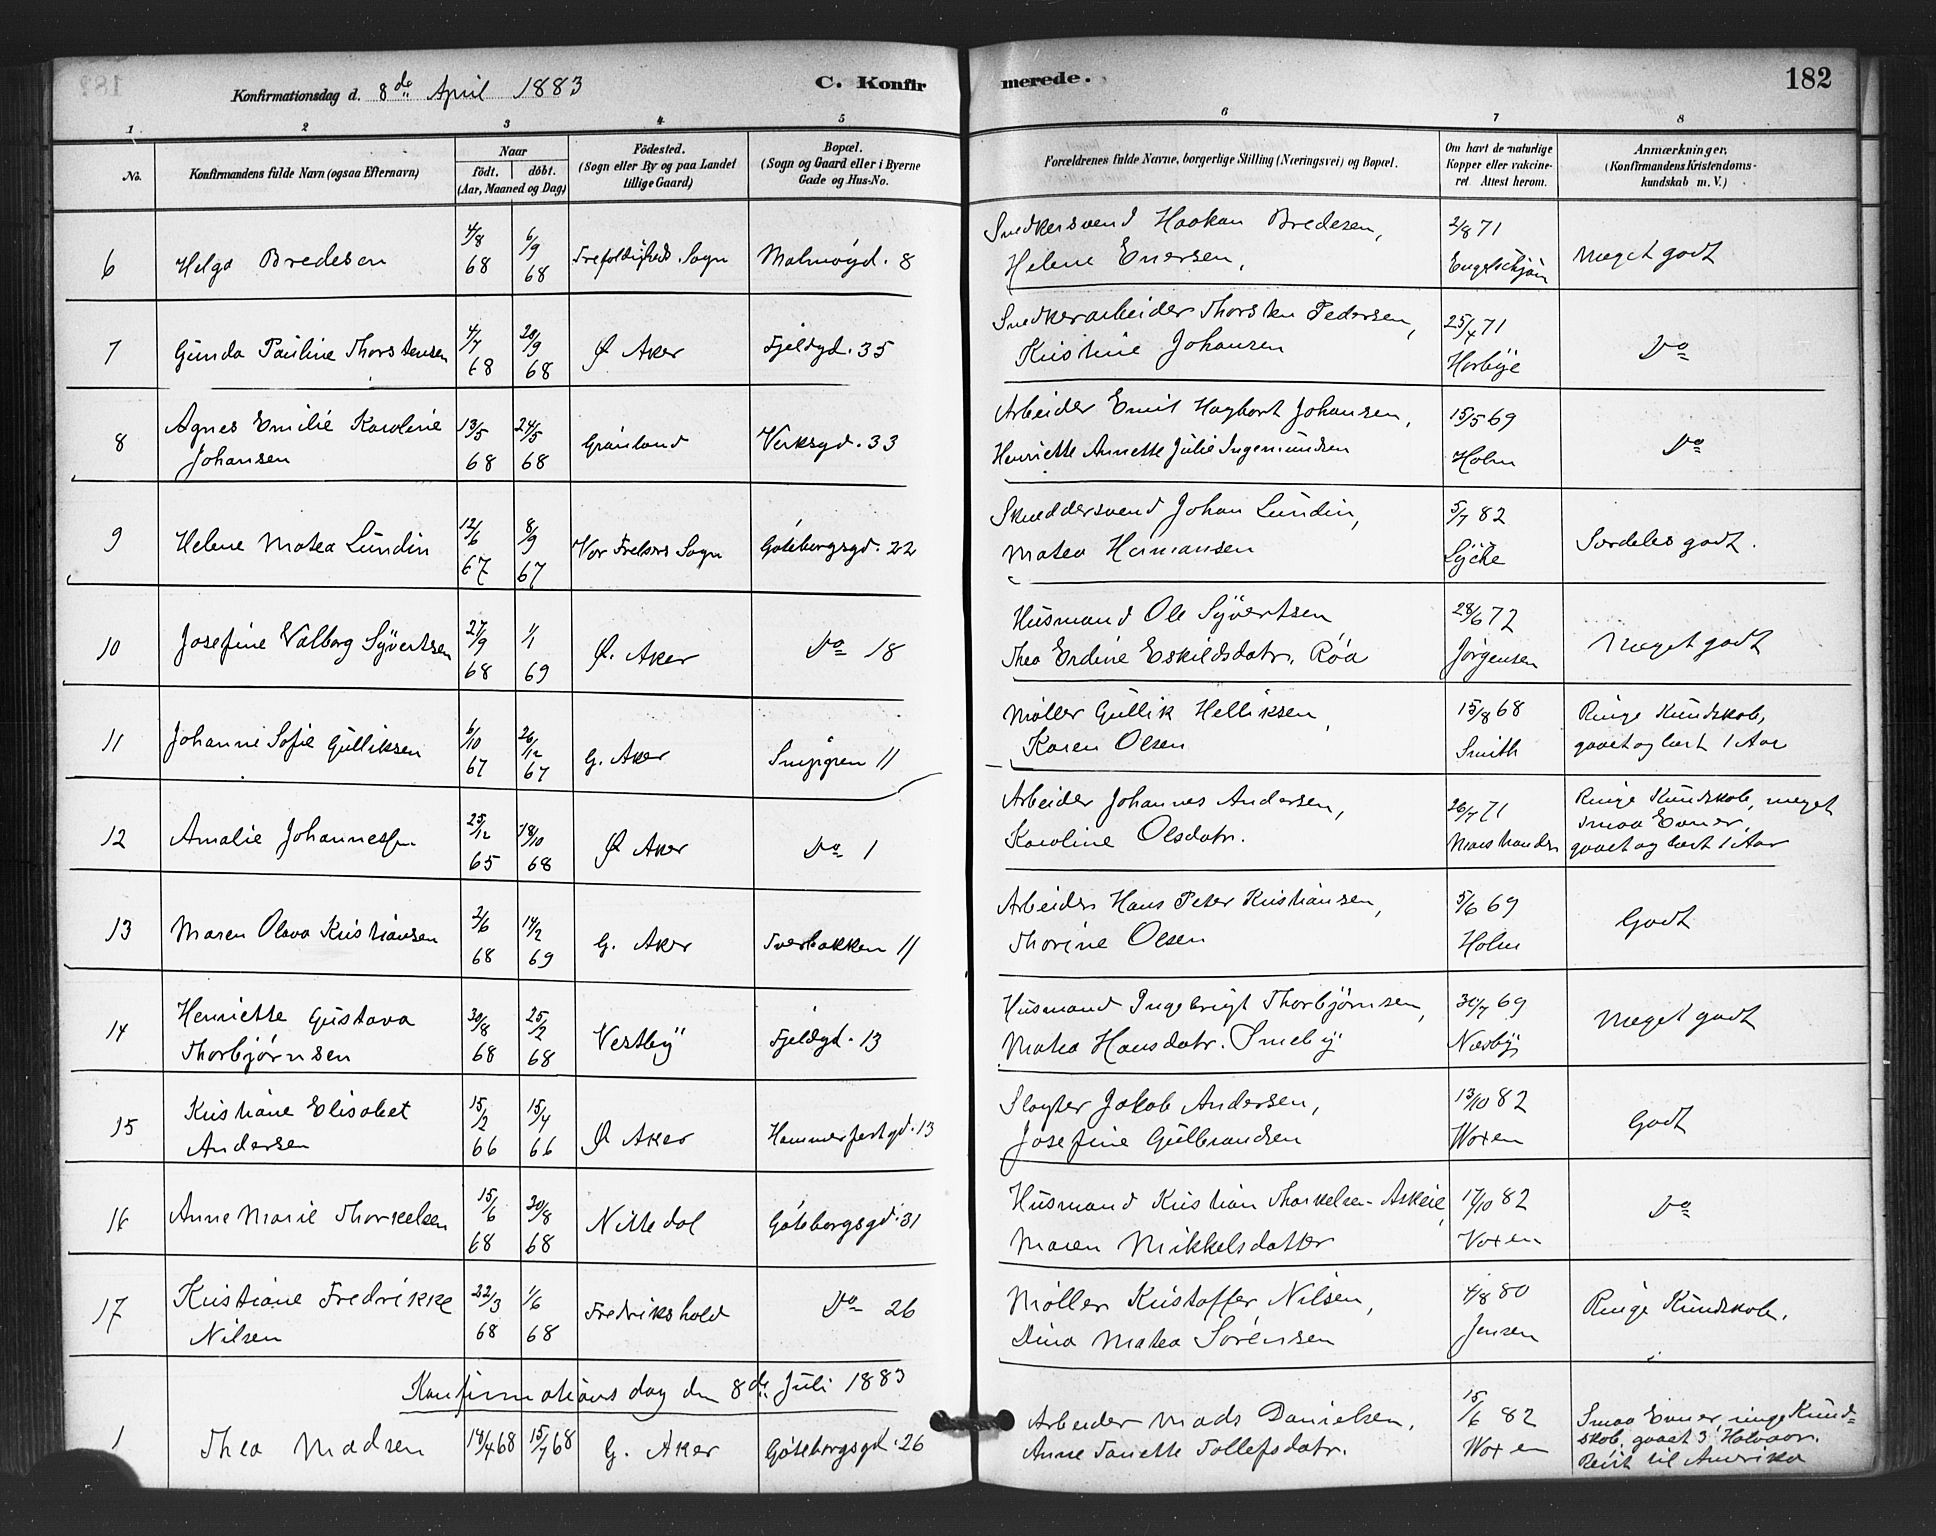 Konfirmationsdag d. 8de April 1883
C. Konfirmerede.
182
1 2 3 4 5 6 7 8
No.
Konfirmandens fulde Navn (ogsaa Efternavn)
Naar
födt. döbt.
(Aar, Maaned og Dag)
Födested.
(Sogn eller By og paa Landet
tillige Gaard)
Bopæl.
(Sogn og Gaard eller i Byerne
Gade og Hus-No.
Forældrenes fulde Navne, borgerlige Stilling (Næringsvei) og Bopæl.
Om havt de naturlige
Kopper eller vakcine-
ret. Attest herom.
Anmærkninger.
(Konfirmandens Kristendoms-
kundskab m. V.)
6 Helga Bredesen 4/8 68 6/9 68 Trefoldigheds Sogn Malmøgd. 8
Snedkersvend Haakon Bredesen,
Helene Enersen,
2/8 71
Engelschjøn
Meget godt
7 Gunda Pauline Thorstensen 4/7 68 20/9 68 Ø Aker Fjeldgd. 35
Snedkerarbeider Thorsten Pedersen,
Kristine Johansen
25/4 71
Horbye
Do
8 Agnes Emilie Karoline
Johansen 13/5 68 24/5 68 Grønland Verksgd. 33
Arbeider Emil Hagbart Johansen,
Henriette Annette Julie Ingemundsen
15/5 69
Holm
Do
9 Helene Matea Lundin 12/6 67 8/9 67 Vor Frelsers Sogn Gøteborgsgd. 22
Skræddersvend Johan Lundin,
Matea Hermansen
5/7 82
Lyche
Særdeles godt.
10 Josefine Valborg Syvertsen 27/9 68 1/1 69 Ø. Aker Do 18
Husmand Ole Syvertsen
Thea Erdine Eskildsdatr. Røa
28/6 72
Jørgensen
Meget godt
11 Johanne Sofie Gulliksen 6/10 67 26/12 67 G. Aker 11
Møller Gullik Helliksen,
Karen Olsen
15/8 68
Smith
Ringe Kundskab,
gaaet og læst 1 Aar
12 Amalie Johannessen 25/12 65 18/10 68 Ø Aker Do 1
Arbeider Johannes Andersen,
Karoline Olsdatr.
26/7 71
Ringe Kundskab, meget
smaa Evner,
gaaet og læst 1 Aar
13 Maren Olava Kristiansen 2/6 68 14/2 69 G. Aker Tverbakken 11
Arbeider Hans Peter Kristiansen,
Thorine Olsen
5/6 69
Holm
Godt
14 Henriette Gustava
Thorbjørnsen 30/8 68 25/2 68 Vestby Fjeldgd. 13
Husmand Ingebrigt Thorbjørnsen,
Matea Hansdatr. Smeby
30/7 69
Næsby
Meget godt
15 Kristiane Elisabet
Andersen 15/2 66 15/4 66 Ø Aker Hammerfestgd. 13
Slagter Jakob Andersen,
Josefine Gulbrandsen
13/10 82
Woxen
Godt
16 Anne Marie Thorkelsen 15/6 68 30/8 68 Nittedal Gøteborgsgd. 31
Husmand Kristian Thorkelsen - Askeie,
Maren Mikkelsdatter
17/10 82
Voxen
Do
17 Kristiane Fredrikke
Nilsen 22/3 68 1/6 68 Fredrikshald Do 26
Møller Kristoffer Nilsen,
Dina Matea Sørensen
4/8 80
Jensen
Ringe Kundskab.
Konfirmationsdag den 8de Juli 1883
1 Thea Madsen 14/4 68 15/7 68 G. Aker Gøteborgsgd. 26
Arbeider Mads Danielsen,
Anne Tonette Tollefsdatr.
15/6 82
Woxen
Smaa Evner, ringe Kund-
skab, gaaet 3 Halvaar.
Reist til Amerika